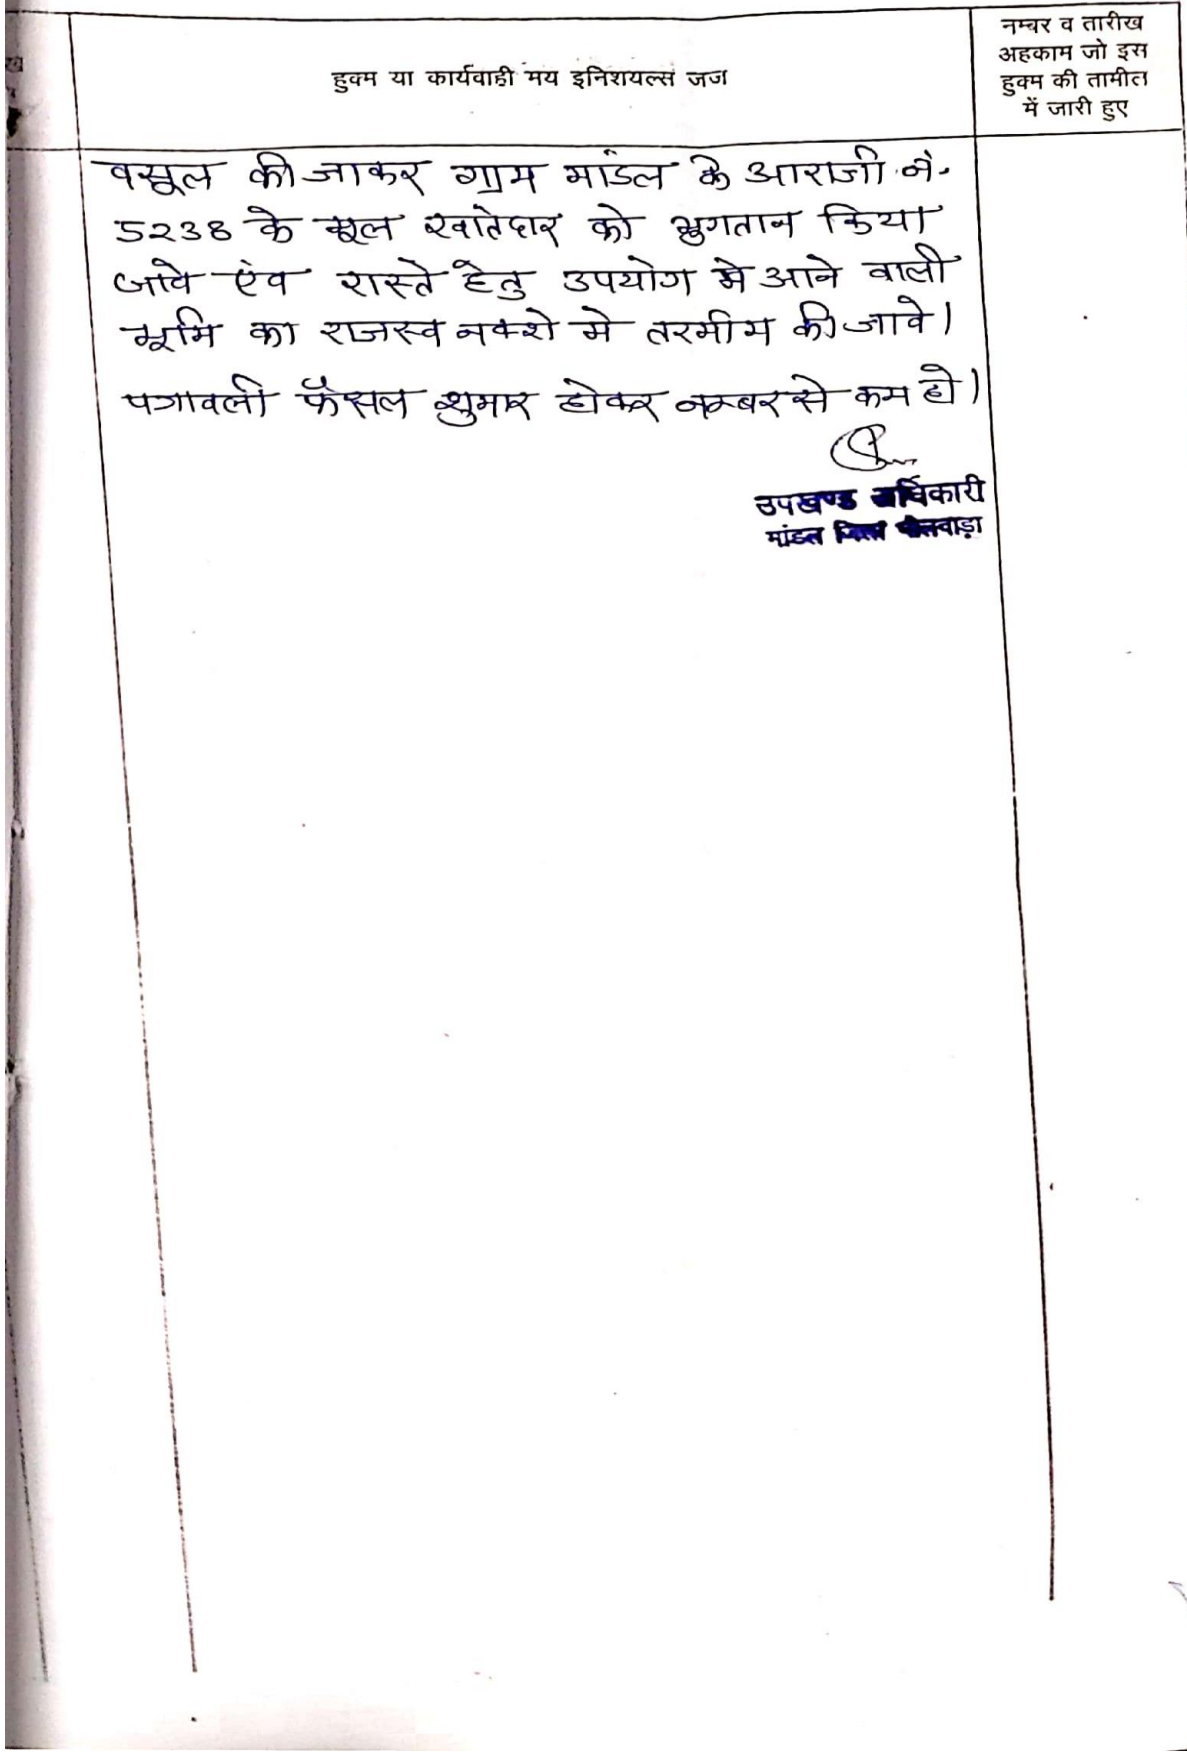 हुक्म या कार्यवाही मय इनिशयल्स जज
नम्बर व तारीख
अहकाम जो इस
हुक्म की तामील
में जारी हुए
वसूल की जाकर ग्राम मांडल के आराजी नं.
5238 के मूल खातेदार को भुगतान किया
जावे एंव रास्ते हेतु उपयोग मे आने वाली
भूमि का राजस्व नक्शे मे तरमीम की जावे।
पत्रावली फैसल शुमार होकर नम्बर से कम हो।
उपखण्ड अधिकारी
मांडल जिला भीलवाड़ा